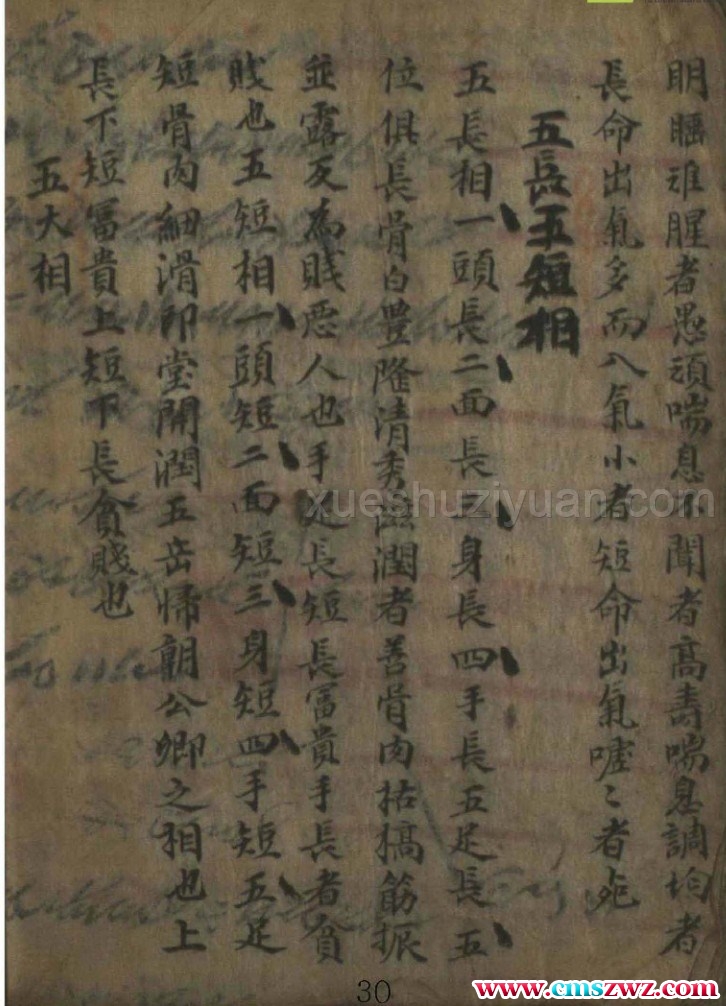 明睡難腥者愚頑喘息不聞者高壽喘息調均者
長命出氣多而入氣小者短命出氣嘘〻者死
五長五短相
五長相一頭長二面長三身長四手長五足長五
位俱長骨白豐隆清秀滋潤者善骨肉枯槁筋振
並露反為賤惡人也手足長短長冨貴手長者貧
賤也五短相一頭短二面短三身短四手短五足
短骨肉細滑印堂開潤五岳㱕朝公卿之相也上
長下短冨貴上短下長貧賤也
五大相
xueshuziyuan.com
30
www.cmszwz.com